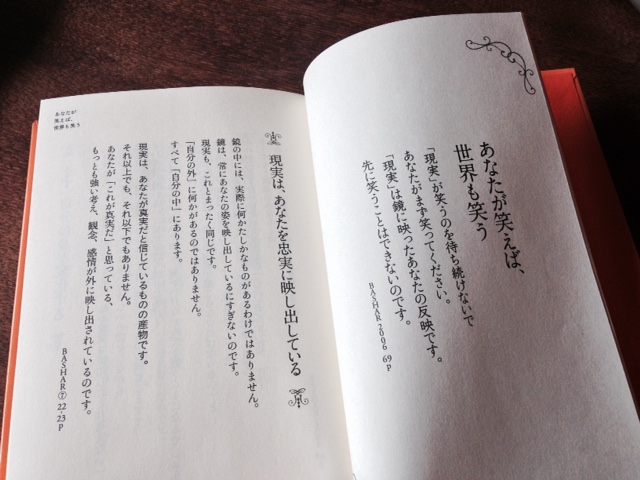 あなたが笑えば、
世界も笑う
「現実」が笑うのを待ち続けないで
あなたがまず笑ってください。
「現実」は鏡に映ったあなたの反映です。
先に笑うことはできないのです。
BASHAR2006 69P
あなたが
笑えば、
世界も笑う
現実は、あなたを忠実に映し出している
鏡の中には、実際に何かたしかなものがあるわけではありません。
鏡は、常にあなたの姿を映し出しているにすぎないのです。
現実も、これとまったく同じです。
「自分の外」に何かがあるのではありません。
すべて「自分の中」にあります。
現実は、あなたが真実だと信じているものの産物です。
それ以上でも、それ以下でもありません。
あなたが「これが真実だ」と思っている、
もっとも強い考え、観念、感情が外に映し出されているのです。
BASHAR⑦ 22-23P